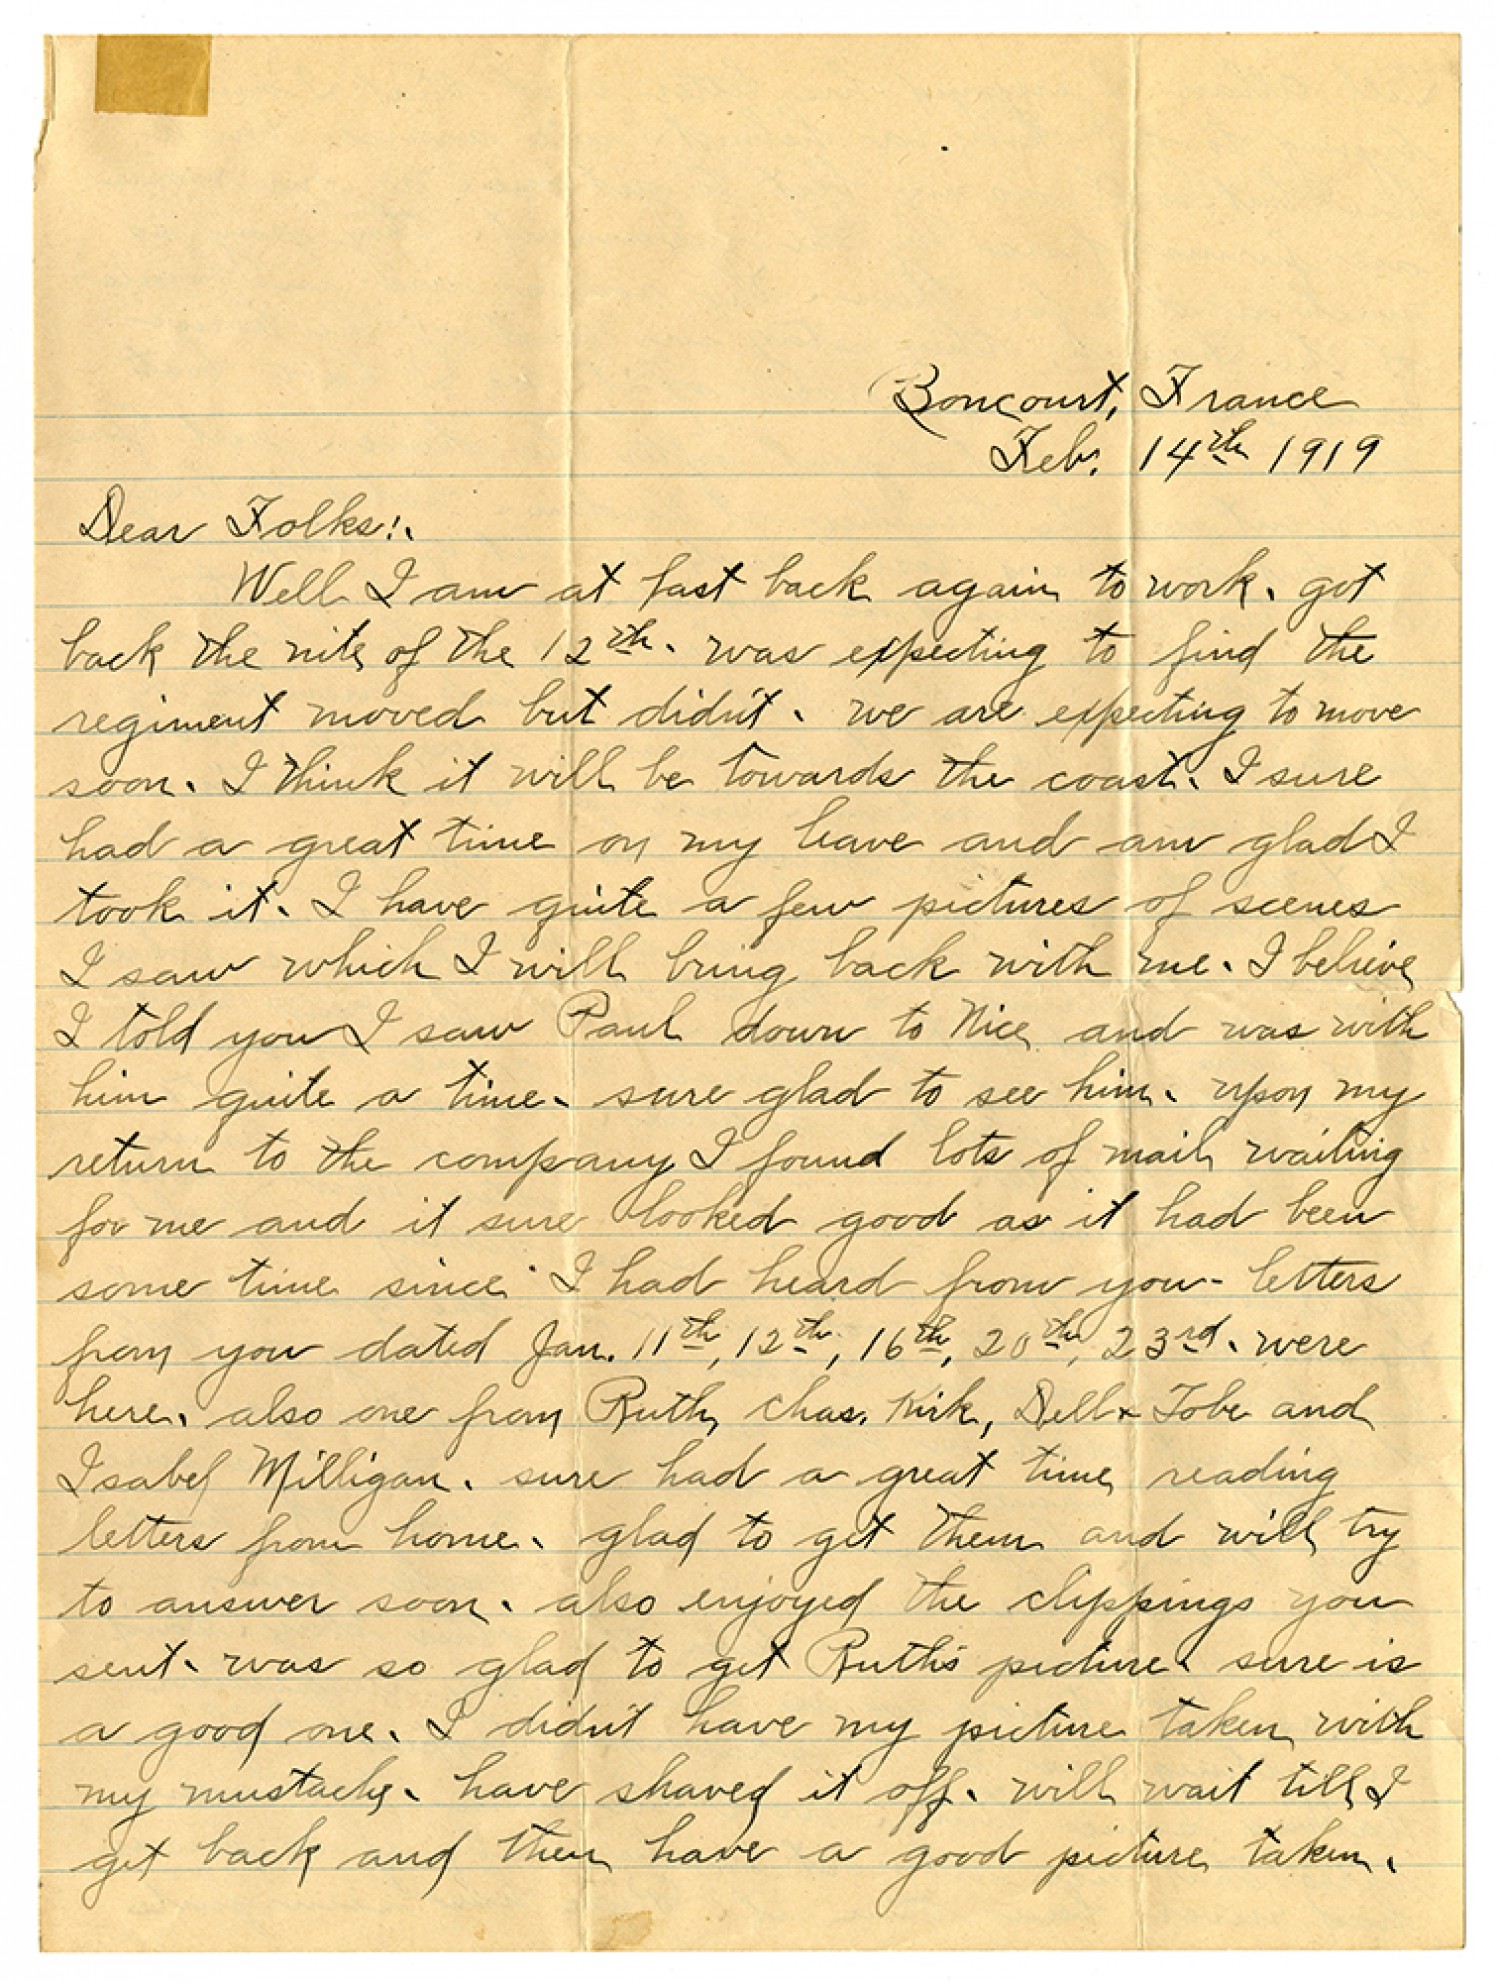 Boncourt, France
Feb. 14th 1919
Dear Folks:.
Well I am at last back again to work. got
back the nite of the 12th. was expecting to find the
regiment moved but didn't. we are expecting to move
soon. I think it will be towards the coast. I sure
had a great time on my leave and am glad I
took it. I have quite a few pictures of scenes
I saw which I will bring back with me. I believe
I told you I saw Paul down to Nice and was with
him quite a time. sure glad to see him. upon my
return to the company I found lots of mail waiting
for me and it sure looked good as it had been
some time since I had heard from you - letters
from you dated Jan. 11th, 12th, 16th, 20th, 23rd. were
here. also one from Ruth, Chas. Kirk, Dell & Tobe and
Isabel Milligan. sure had a great time reading
letters from home. glad to get them and will try
to answer soon. also enjoyed the clippings you
sent. was so glad to get Ruth's picture. sure is
a good one. I didn't have my picture taken with
my mustache. have shaved it off. will wait till I
get back and then have a good picture taken.